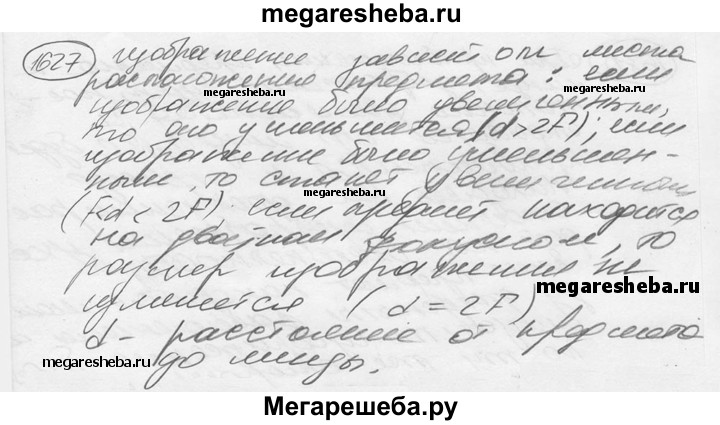 megaresheba.ru
1627 изображение зависит от места
расположения предмета: если
megaresheba.ru
изображение было увеличенным,
то оно уменьшится (d>2F); если
изображение было уменьшен-
ным, то станет увеличенным
megaresheba.ru
(F<d<2F), если предмет находится
на двойном фокусном, то
размер изображения не
изменется (d=2F)
megaresheba.ru
d- расстояние от предмета
megaresheba.ru
до линзы.
Мегарешеба.ру